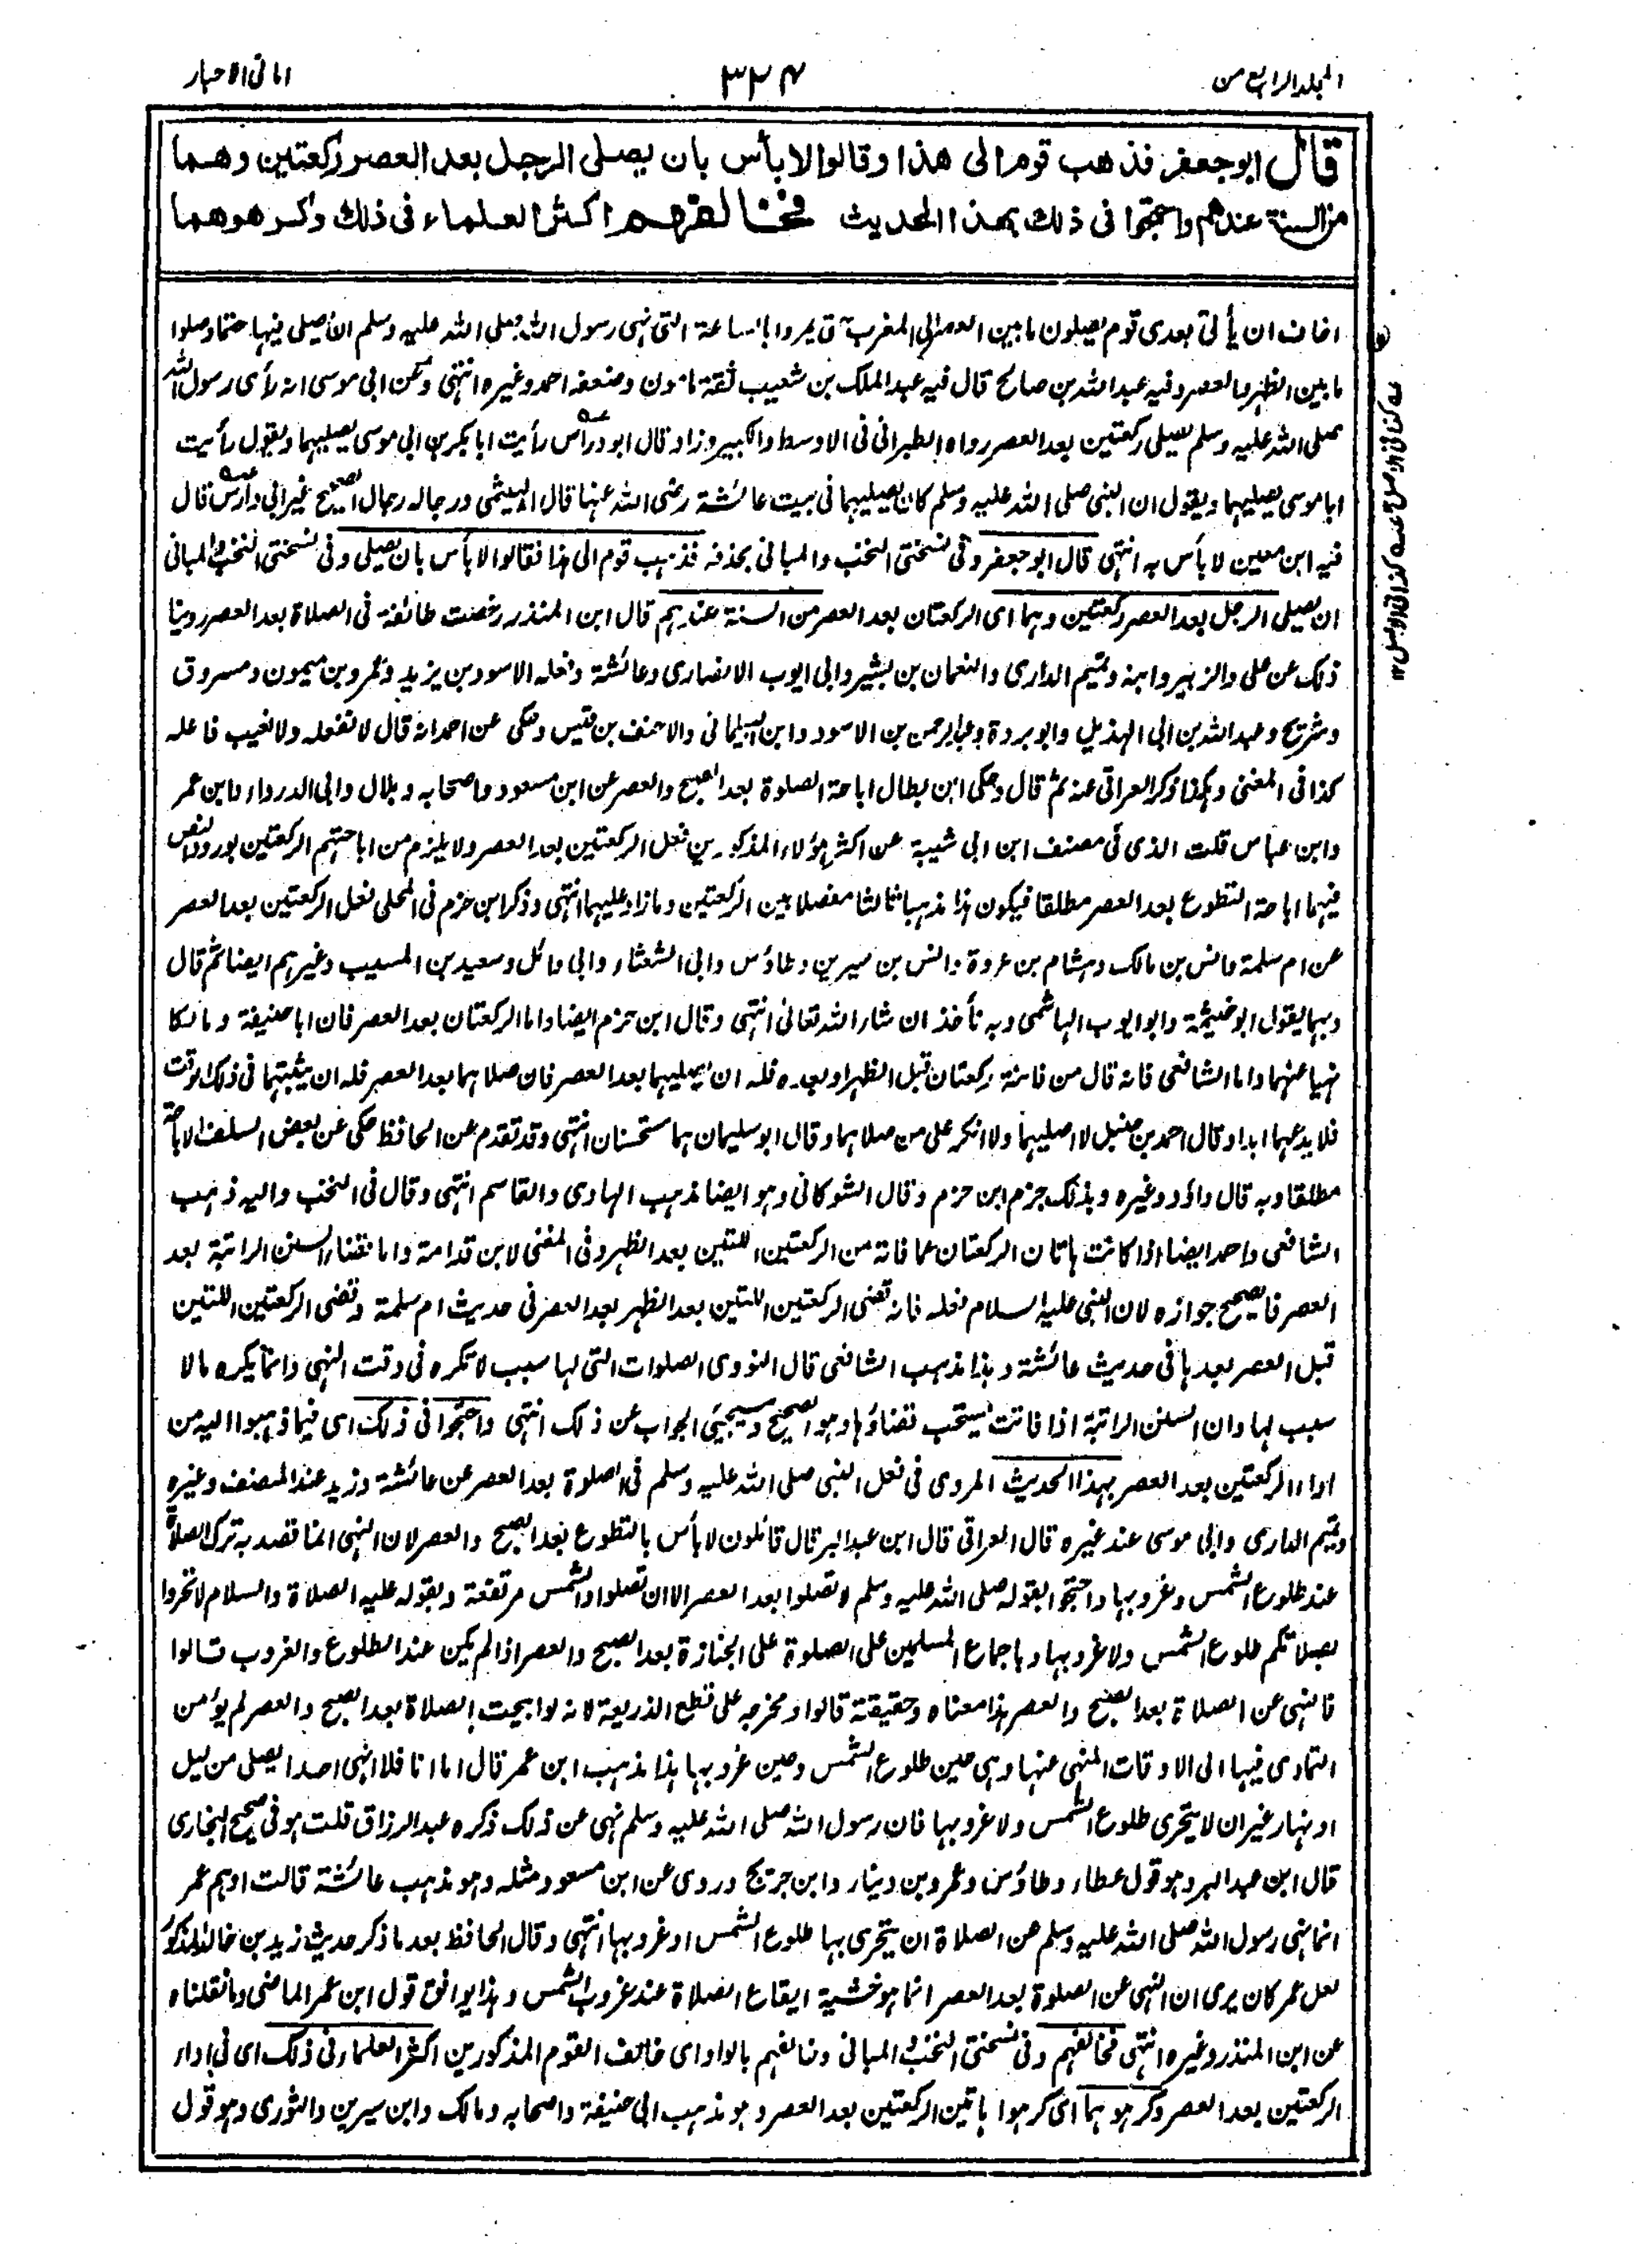 المجلد الرابع من
٣٣٤
امانی الاحبار
قال ابو جعفر فذهب قوم الى هذا وقالوا لا بأس بان يصلى الرجل بعد العصر ركعتين وهما
من السنة عندهم واحتجوا فى ذلك بهذا الحديث فخالفهم اكثر العلماء فى ذلك وكرهوهما
اخاف ان يأتى بعدى قوم يصلون ما بين العصر الى المغرب حتى يمروا بالساعة التى نهى رسول الله صلى الله عليه وسلم ان يصلى فيها حتى وصلوا
ما بين الظهر والعصر وفيه عبد الله بن صالح قال فيه عبد الملك بن شعيب ثقة مامون وضعفه احمد وغيره انتهى وعن ابى موسى انه رأى رسول الله
صلى الله عليه وسلم يصلى ركعتين بعد العصر رواه الطبرانى فى الاوسط والكبير وزاد قال ابو دراس رأيت ابا بكر بن ابى موسى يصليهما ويقول رأيت
ابا موسى يصليهما ويقول ان النبى صلى الله عليه وسلم كان يصليهما فى بيت عائشة رضى الله عنها قال الهيثمى ورجاله رجال الصحيح غير ابى دارس قال
فيه ابن معين لا بأس به انتهى قال ابو جعفر وفى نسختى النخب والمبانى بحذفه فذهب قوم الى هذا فقالوا لا بأس بان يصلى وفى نسختى النخب والمبانى
ان يصلى الرجل بعد العصر ركعتين وهما اى الركعتان بعد العصر من السنة عندهم قال ابن المنذر رخصت طائفة فى الصلاة بعد العصر روينا
ذلك عن على والزبير وابنه وتميم الدارى والنعمان بن بشير وابى ايوب الانصارى وعائشة وفعله الاسود بن يزيد وعمرو بن ميمون ومسروق
وشريح وعبد الله بن ابى الهذيل وابو بردة وعبد الرحمن بن الاسود وابن البيلمانى والاحنف بن قيس وحكى عن احمد انه قال لا نفعله ولا نعيب فاعله
كذا فى المغنى وهكذا ذكر العراقى عنه ثم قال وحكى ابن بطال اباحة الصلوة بعد الصبح والعصر عن ابن مسعود واصحابه وبلال وابى الدرداء وابن عمر
وابن عباس قلت الذى فى مصنف ابن ابى شيبة عن اكثر هؤلاء المذكورين فعل الركعتين بعد العصر ولا يلزم من اباحتهم الركعتين بورود النص
فيهما اباحة التطوع بعد العصر مطلقا فيكون هذا مذهبا ثالثا مفصلا بين الركعتين وما زاد عليهما انتهى وذكر ابن حزم فى المحلى فعل الركعتين بعد العصر
عن ام سلمة وانس بن مالك وهشام بن عروة وانس بن سيرين وطاؤس وابى الشعثاء وابى وائل وسعيد بن المسيب وغيرهم ايضا ثم قال
وبهما يقول ابو خيثمة وابو ايوب الهاشمى وبه نأخذ ان شاء الله تعالى انتهى وقال ابن حزم ايضا واما الركعتان بعد العصر فان ابا حنيفة ومالكا
نهيا عنهما واما الشافعى فانه قال من فاتته ركعتان قبل الظهر او بعده فله ان يصليهما بعد العصر فان صلاهما بعد العصر فله ان يثبتهما فى ذلك الوقت
فلا يدعهما ابدا وقال احمد بن حنبل لا اصليهما ولا انكر على من صلاهما وقال ابو سليمان هما مستحسنان انتهى وقد تقدم عن الحافظ حكى عن بعض السلف الاباحة
مطلقا وبه قال داؤد وغيره وبذلك جزم ابن حزم وقال الشوكانى وهو ايضا مذهب الهادى والقاسم انتهى وقال فى النخب واليه ذهب
الشافعى واحمد ايضا اذا كانت هاتان الركعتان عما فاته من الركعتين اللتين بعد الظهر وفى المغنى لابن قدامة واما قضاء السنن الراتبة بعد
العصر فالصحيح جوازه لان النبى عليه السلام فعله فانه قضى الركعتين اللتين بعد الظهر بعد العصر فى حديث ام سلمة وقضى الركعتين اللتين
قبل العصر بعدها فى حديث عائشة وهذا مذهب الشافعى قال النووى الصلوات التى لها سبب لا تكره فى وقت النهى وانما يكره ما لا
سبب لها وان السنن الراتبة اذا فاتت يستحب قضاؤها وهو الصحيح وسيجيئ الجواب عن ذلك انتهى واحتجوا فى ذلك اى فيما ذهبوا اليه من
اداء الركعتين بعد العصر بهذا الحديث المروى فى فعل النبى صلى الله عليه وسلم فى الصلوة بعد العصر عن عائشة وزيد عند المصنف وغيره
وتميم الدارى وابى موسى عند غيره قال العراقى قال ابن عبد البر قال قائلون لا بأس بالتطوع بعد الصبح والعصر لان النهى انما قصد به ترك الصلاة
عند طلوع الشمس وغروبها واحتجوا بقوله صلى الله عليه وسلم لا تصلوا بعد العصر الا ان تصلوا والشمس مرتفعة وبقوله عليه الصلاة والسلام لا تحروا
بصلاتكم طلوع الشمس ولا غروبها وباجماع المسلمين على الصلوة على الجنازة بعد الصبح والعصر اذا لم يكن عند الطلوع والغروب قالوا
فالنهى عن الصلاة بعد الصبح والعصر هذا معناه وحقيقته قالوا ومخرجه على قطع الذريعة لانه لو ابيحت الصلاة بعد الصبح والعصر لم يؤمن
التمادى فيها الى الاوقات المنهى عنها وهى حين طلوع الشمس وحين غروبها هذا مذهب ابن عمر قال اما انا فلا انهى احدا يصلى من ليل
او نهار غير ان لا يتحرى طلوع الشمس ولا غروبها فان رسول الله صلى الله عليه وسلم نهى عن ذلك ذكره عبد الرزاق قلت هو فى صحيح البخارى
قال ابن عبد البر وهو قول عطاء وطاؤس وعمرو بن دينار وابن جريج وروى عن ابن مسعود مثله وهو مذهب عائشة قالت اوهم عمر
انما نهى رسول الله صلى الله عليه وسلم عن الصلاة ان يتحرى بها طلوع الشمس او غروبها انتهى وقال الحافظ بعد ما ذكر حديث زيد بن خالد المذكور
لعل عمر كان يرى ان النهى عن الصلوة بعد العصر انما هو خشية ايقاع الصلاة عند غروب الشمس وهذا يوافق قول ابن عمر الماضى وما نقلناه
عن ابن المنذر وغيره انتهى فخالفهم وفى نسختى النخب والمبانى وخالفهم بالواو اى خالف القوم المذكورين اكثر العلماء فى ذلك اى فى اداء
الركعتين بعد العصر وكرهوهما اى كرهوا هاتين الركعتين بعد العصر وهو مذهب ابى حنيفة واصحابه ومالك وابن سيرين والثورى وهو قول
عه كذا فى الاصل عه كذا فى الاصل ١٢